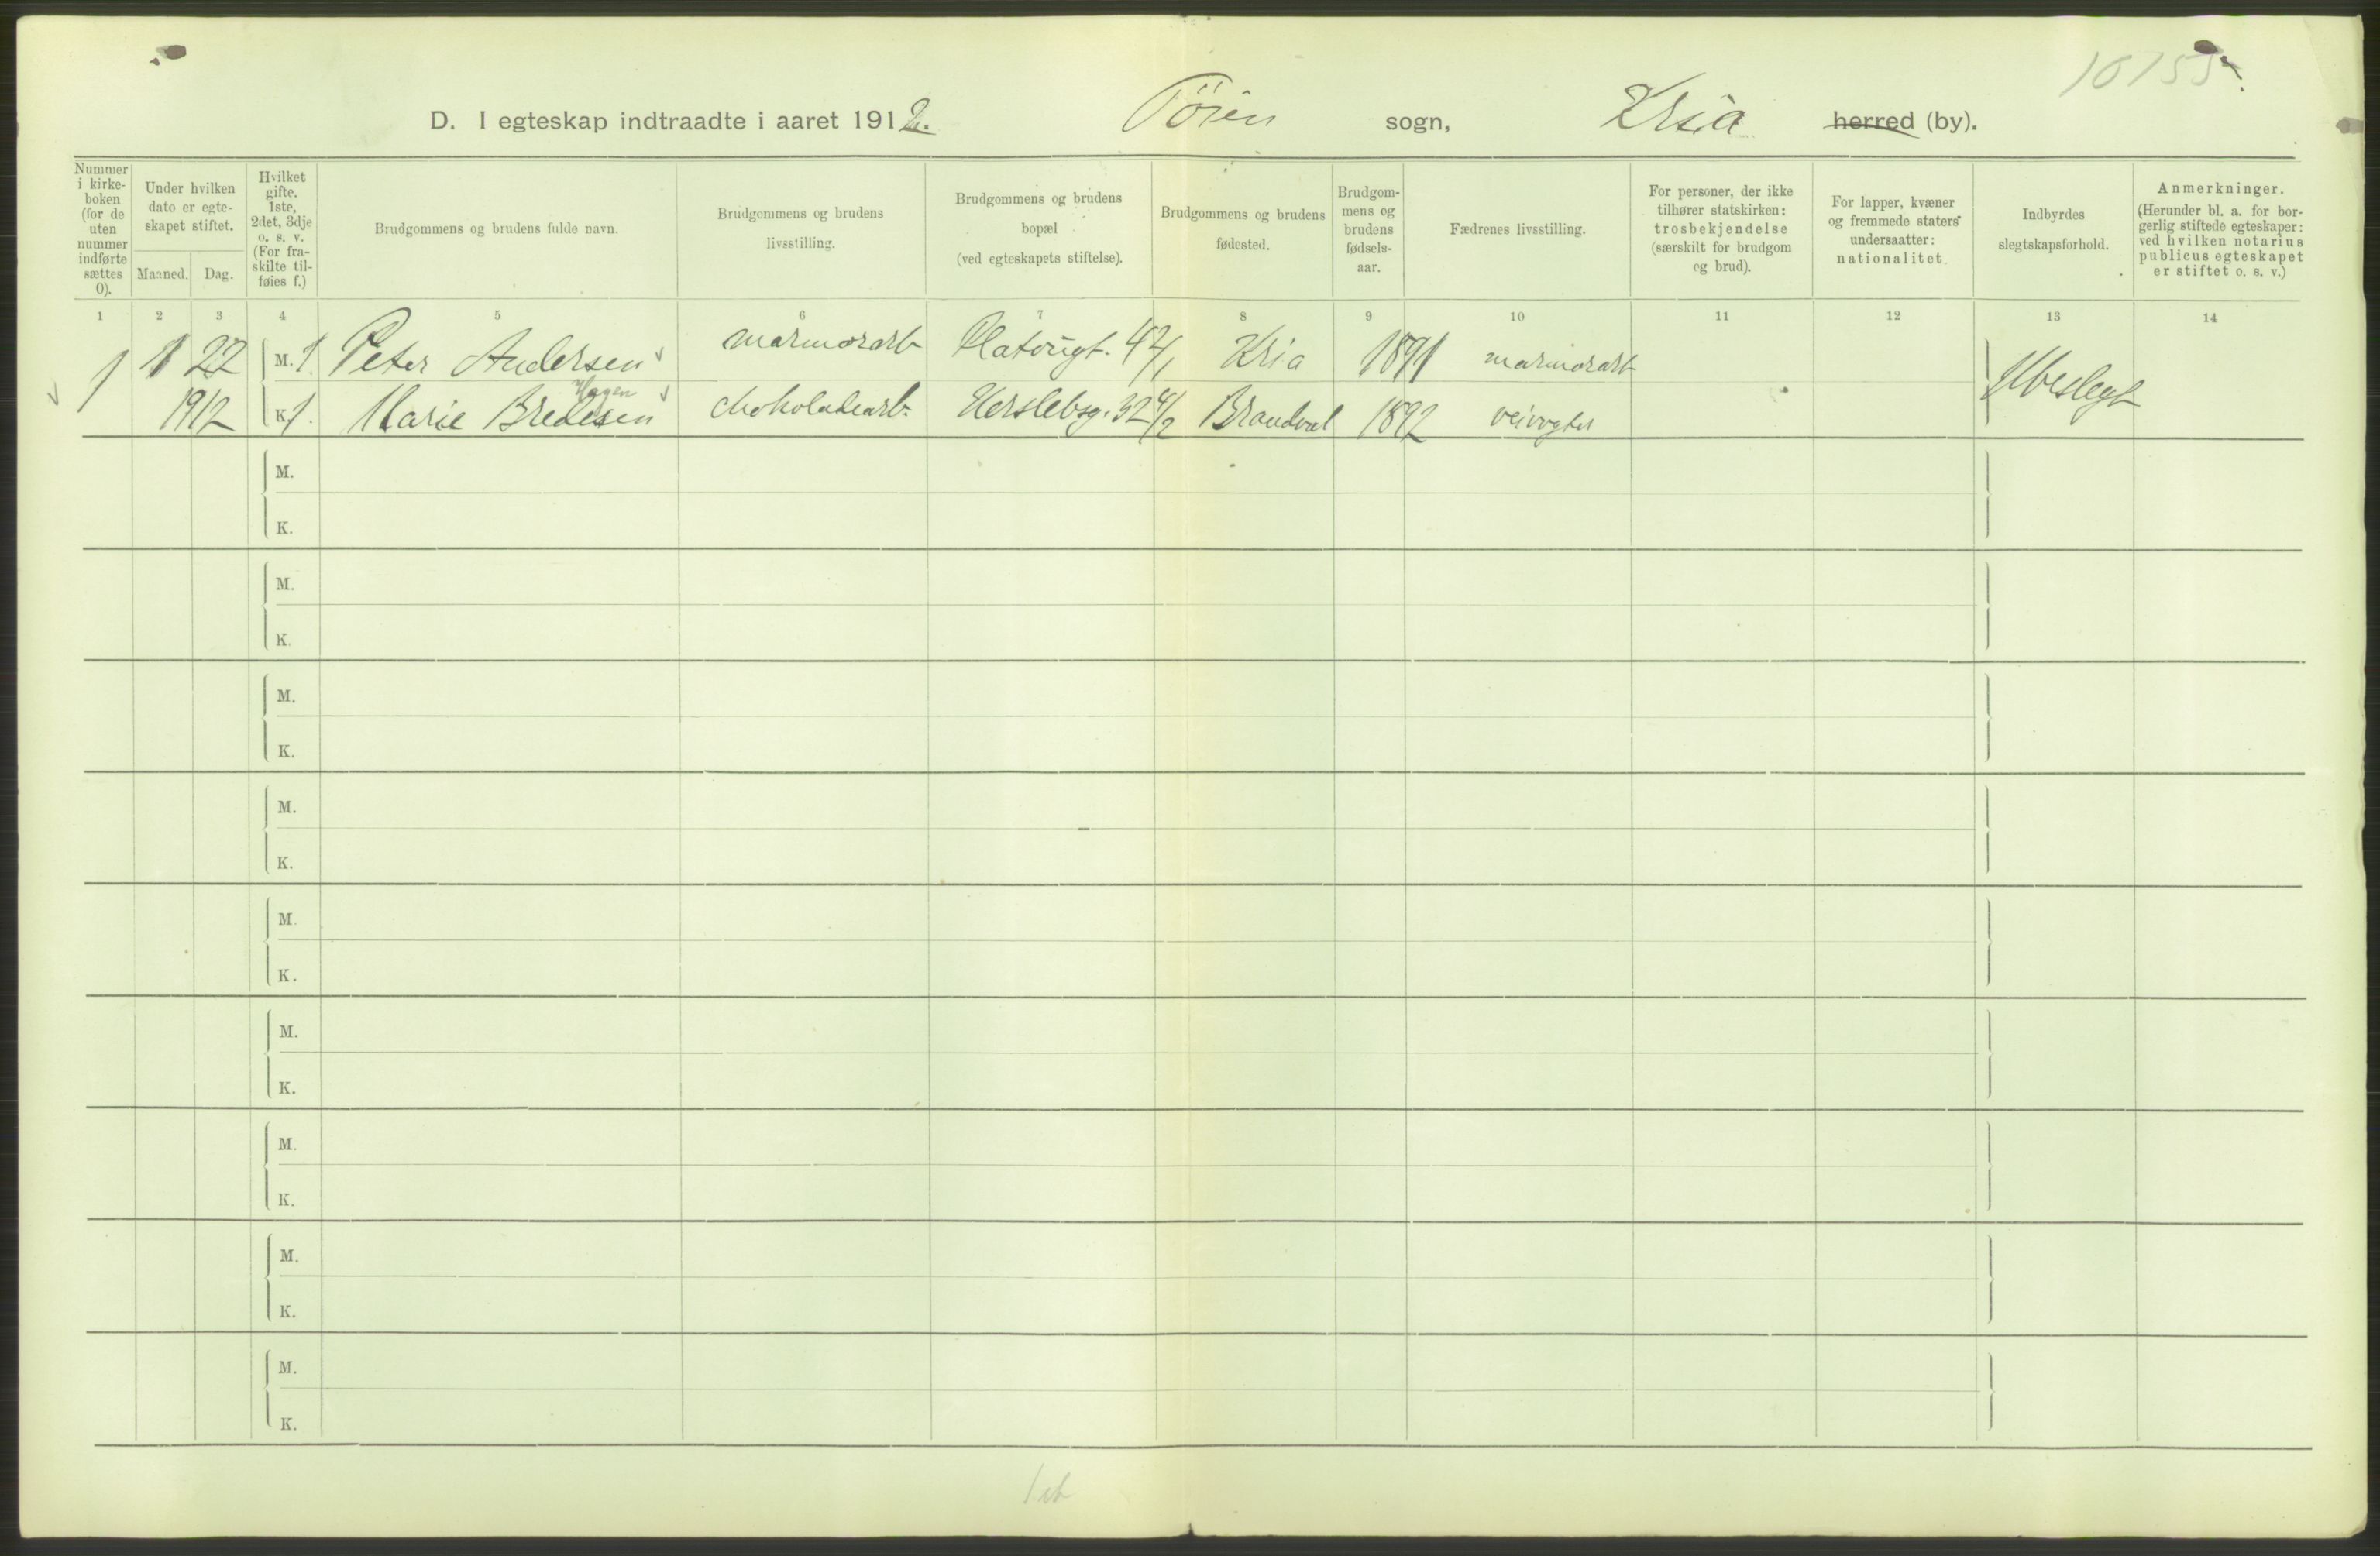 10155.
D. I egteskap indtraadte i aaret 1912. Töien sogn, Kria herred (by).
Nummer i kirke-boken (for de uten nummer indførte sættes 0).
Under hvilken dato er egte-skapet stiftet.
Maaned. Dag.
Hvilket gifte. 1ste, 2det, 3dje o. s. v. (For fra-skilte til-føies f.)
Brudgommens og brudens fulde navn.
Brudgommens og brudens livsstilling.
Brudgommens og brudens bopæl (ved egteskapets stiftelse).
Brudgommens og brudens fødested.
Brudgom-mens og brudens fødsels-aar.
Fædrenes livsstilling.
For personer, der ikke tilhører statskirken: trosbekjendelse (særskilt for brudgom og brud).
For lapper, kvæner og fremmede staters undersaatter: nationalitet.
Indbyrdes slegtskapsforhold.
Anmerkninger. (Herunder bl. a. for bor-gerlig stiftede egteskaper: ved hvilken notarius publicus egteskapet er stiftet o. s. v.)
1 2 3 4 5 6 7 8 9 10 11 12 13 14
1 1 22 M. 1 Peter Andersen marmorarb Platougt. 42/1 Kria 1891 marmorarb Ubeslegt
Hagen
1912 K. 1. Marie Bredesen chokoladearb. Herslebsg. 32 4/2 Brandval 1892 veivogter
M.
K.
M.
K.
M.
K.
M.
K.
M.
K.
M.
K.
M.
K.
M.
K.
M.
K.